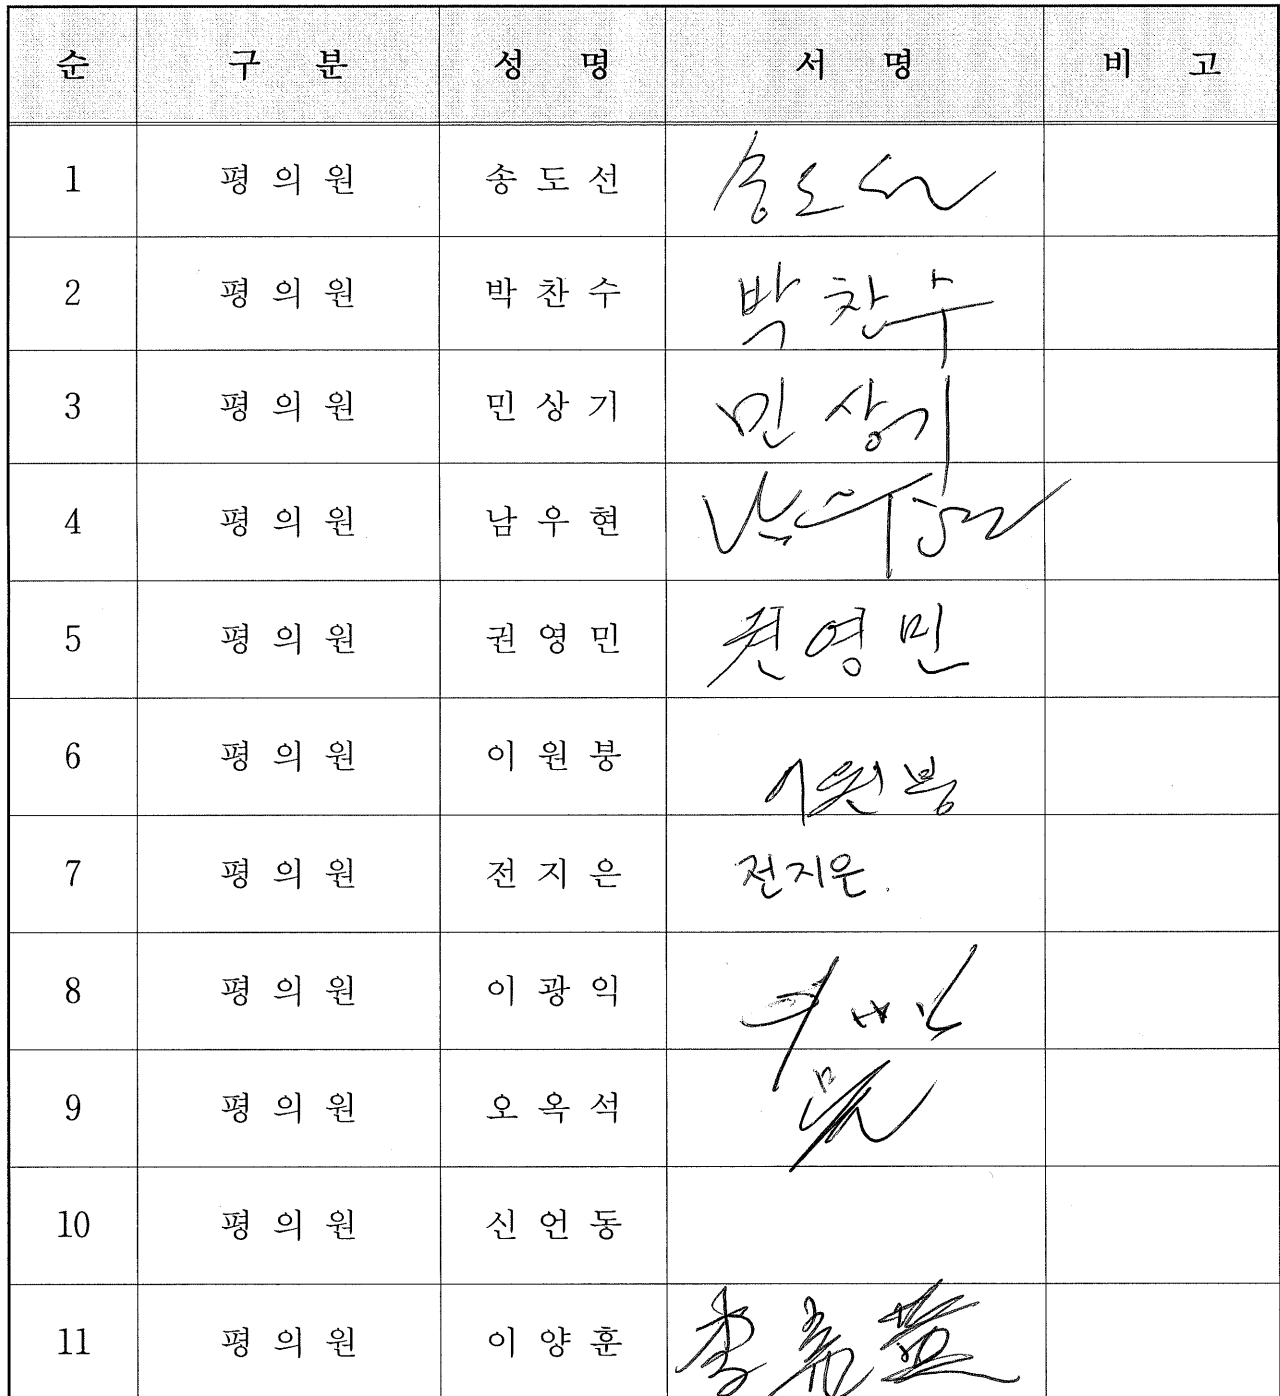 순 구 분 성 명 서 명 비 고
1 평 의 원 송 도 선 송도선
2 평 의 원 박 찬 수 박찬수
3 평 의 원 민 상 기 민상기
4 평 의 원 남 우 현
5 평 의 원 권 영 민 권영민
6 평 의 원 이 원 붕 이원붕
7 평 의 원 전 지 은 전지은.
8 평 의 원 이 광 익
9 평 의 원 오 옥 석
10 평 의 원 신 언 동
11 평 의 원 이 양 훈